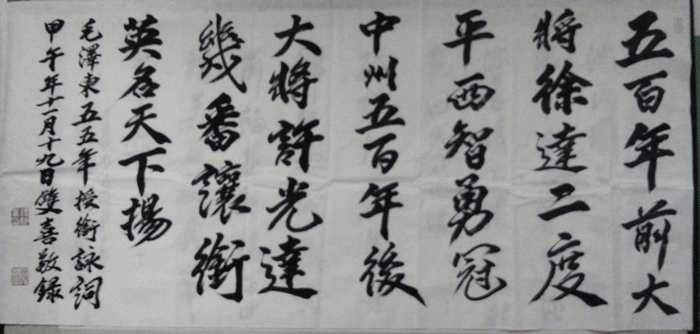 五百年前大
將徐達二度
平西智勇冠
中州五百年後
大將許光達
幾番讓銜
英名天下揚
毛澤東五五年授銜詠詞
甲午年十一月十九日雙喜敬錄